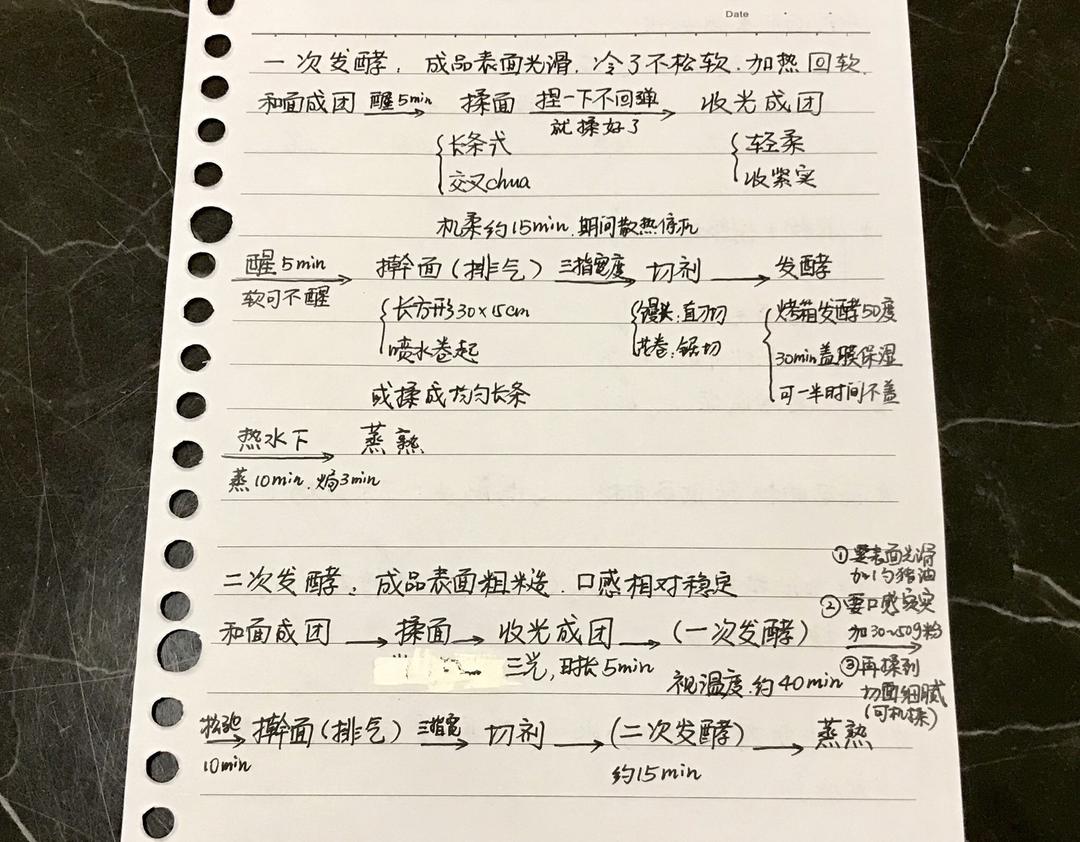 Date
一次发酵，成品表面光滑，冷了不松软，加热回软.
和面成团 醒5min 揉面 捏一下不回弹 收光成团
就揉好了
长条式 轻柔
交叉chua 收紧实
机柔约15min.期间散热停机
醒5min 擀面(排气) 三指宽度 切剂 发酵
软可不醒 长方形30×15cm 馒头:直刀切 烤箱发酵50度
喷水卷起 花卷:锯切 30min盖膜保湿
或揉成均匀长条 可一半时间不盖
热水下 蒸熟
蒸10min.焗3min
二次发酵，成品表面粗糙，口感相对稳定
和面成团 揉面 收光成团 (一次发酵)
三光,时长5min 视温度.约40min
①要表面光滑
加1勺猪油
②要口感实
加30~50g粉
③再揉到
切面细腻
(可机揉)
松弛 擀面(排气) 三指宽 切剂 (二次发酵) 蒸熟
10min 约15min